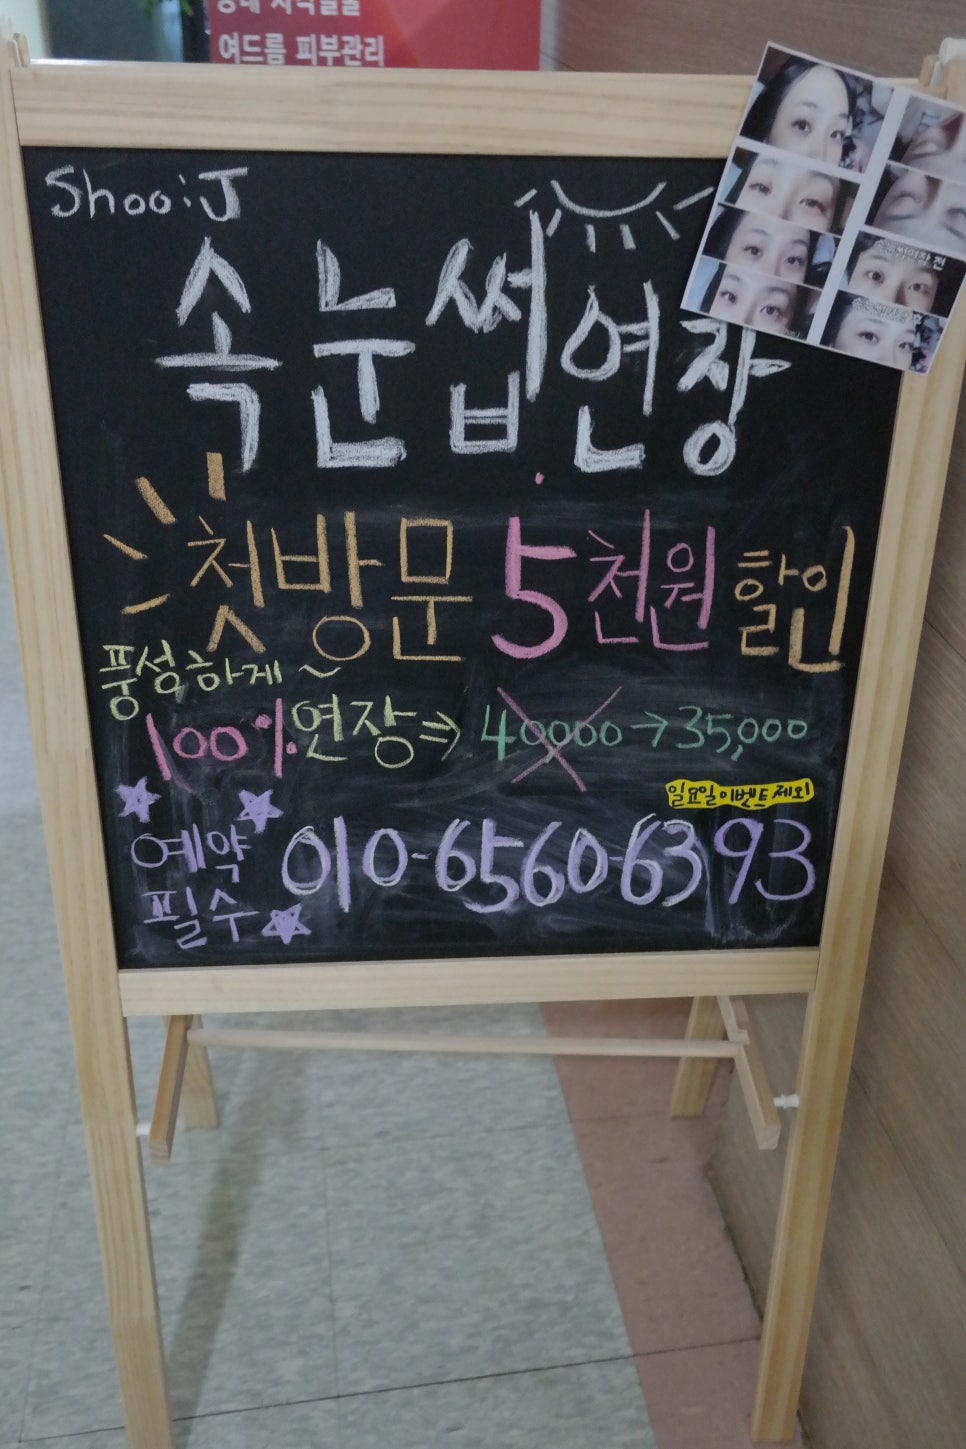 여드름 피부관리
Shoo:J
속눈썹연장
첫방문 5천원 할인
풍성하게~
100% 연장⇒ 40000→35,000
일요일 이벤트 제외
예약
필수
010-6560-6393
속눈썹연장 전